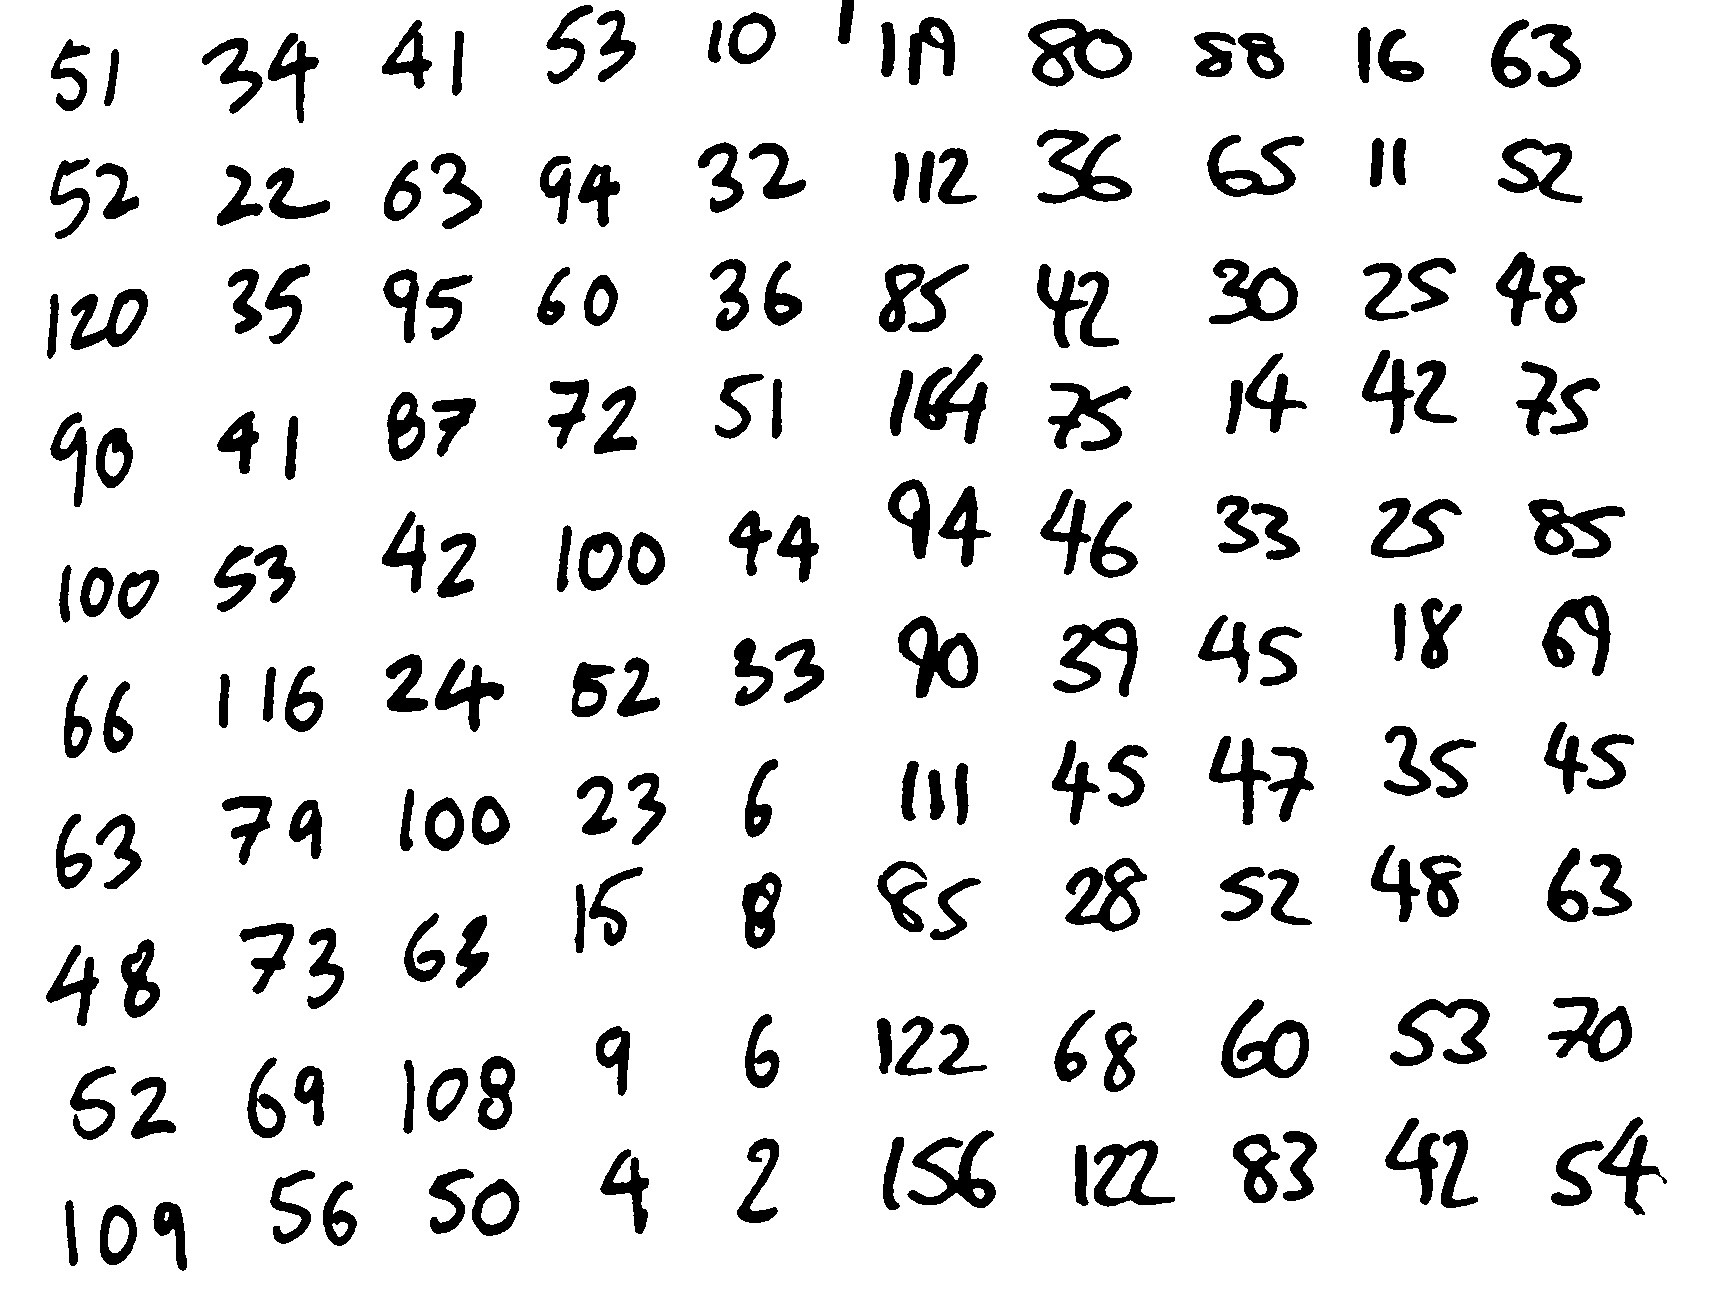 51 34 41 53 10 19 80 88 16 63
52 22 63 94 32 112 36 65 11 52
120 35 95 60 36 85 42 30 25 48
90 41 87 72 51 164 75 14 42 75
100 53 42 100 44 94 46 33 25 85
66 116 24 52 33 90 39 45 18 69
63 79 100 23 6 111 45 47 35 45
48 73 63 15 8 85 28 52 48 63
52 69 108 9 6 122 68 60 53 70
109 56 50 4 2 156 122 83 42 54